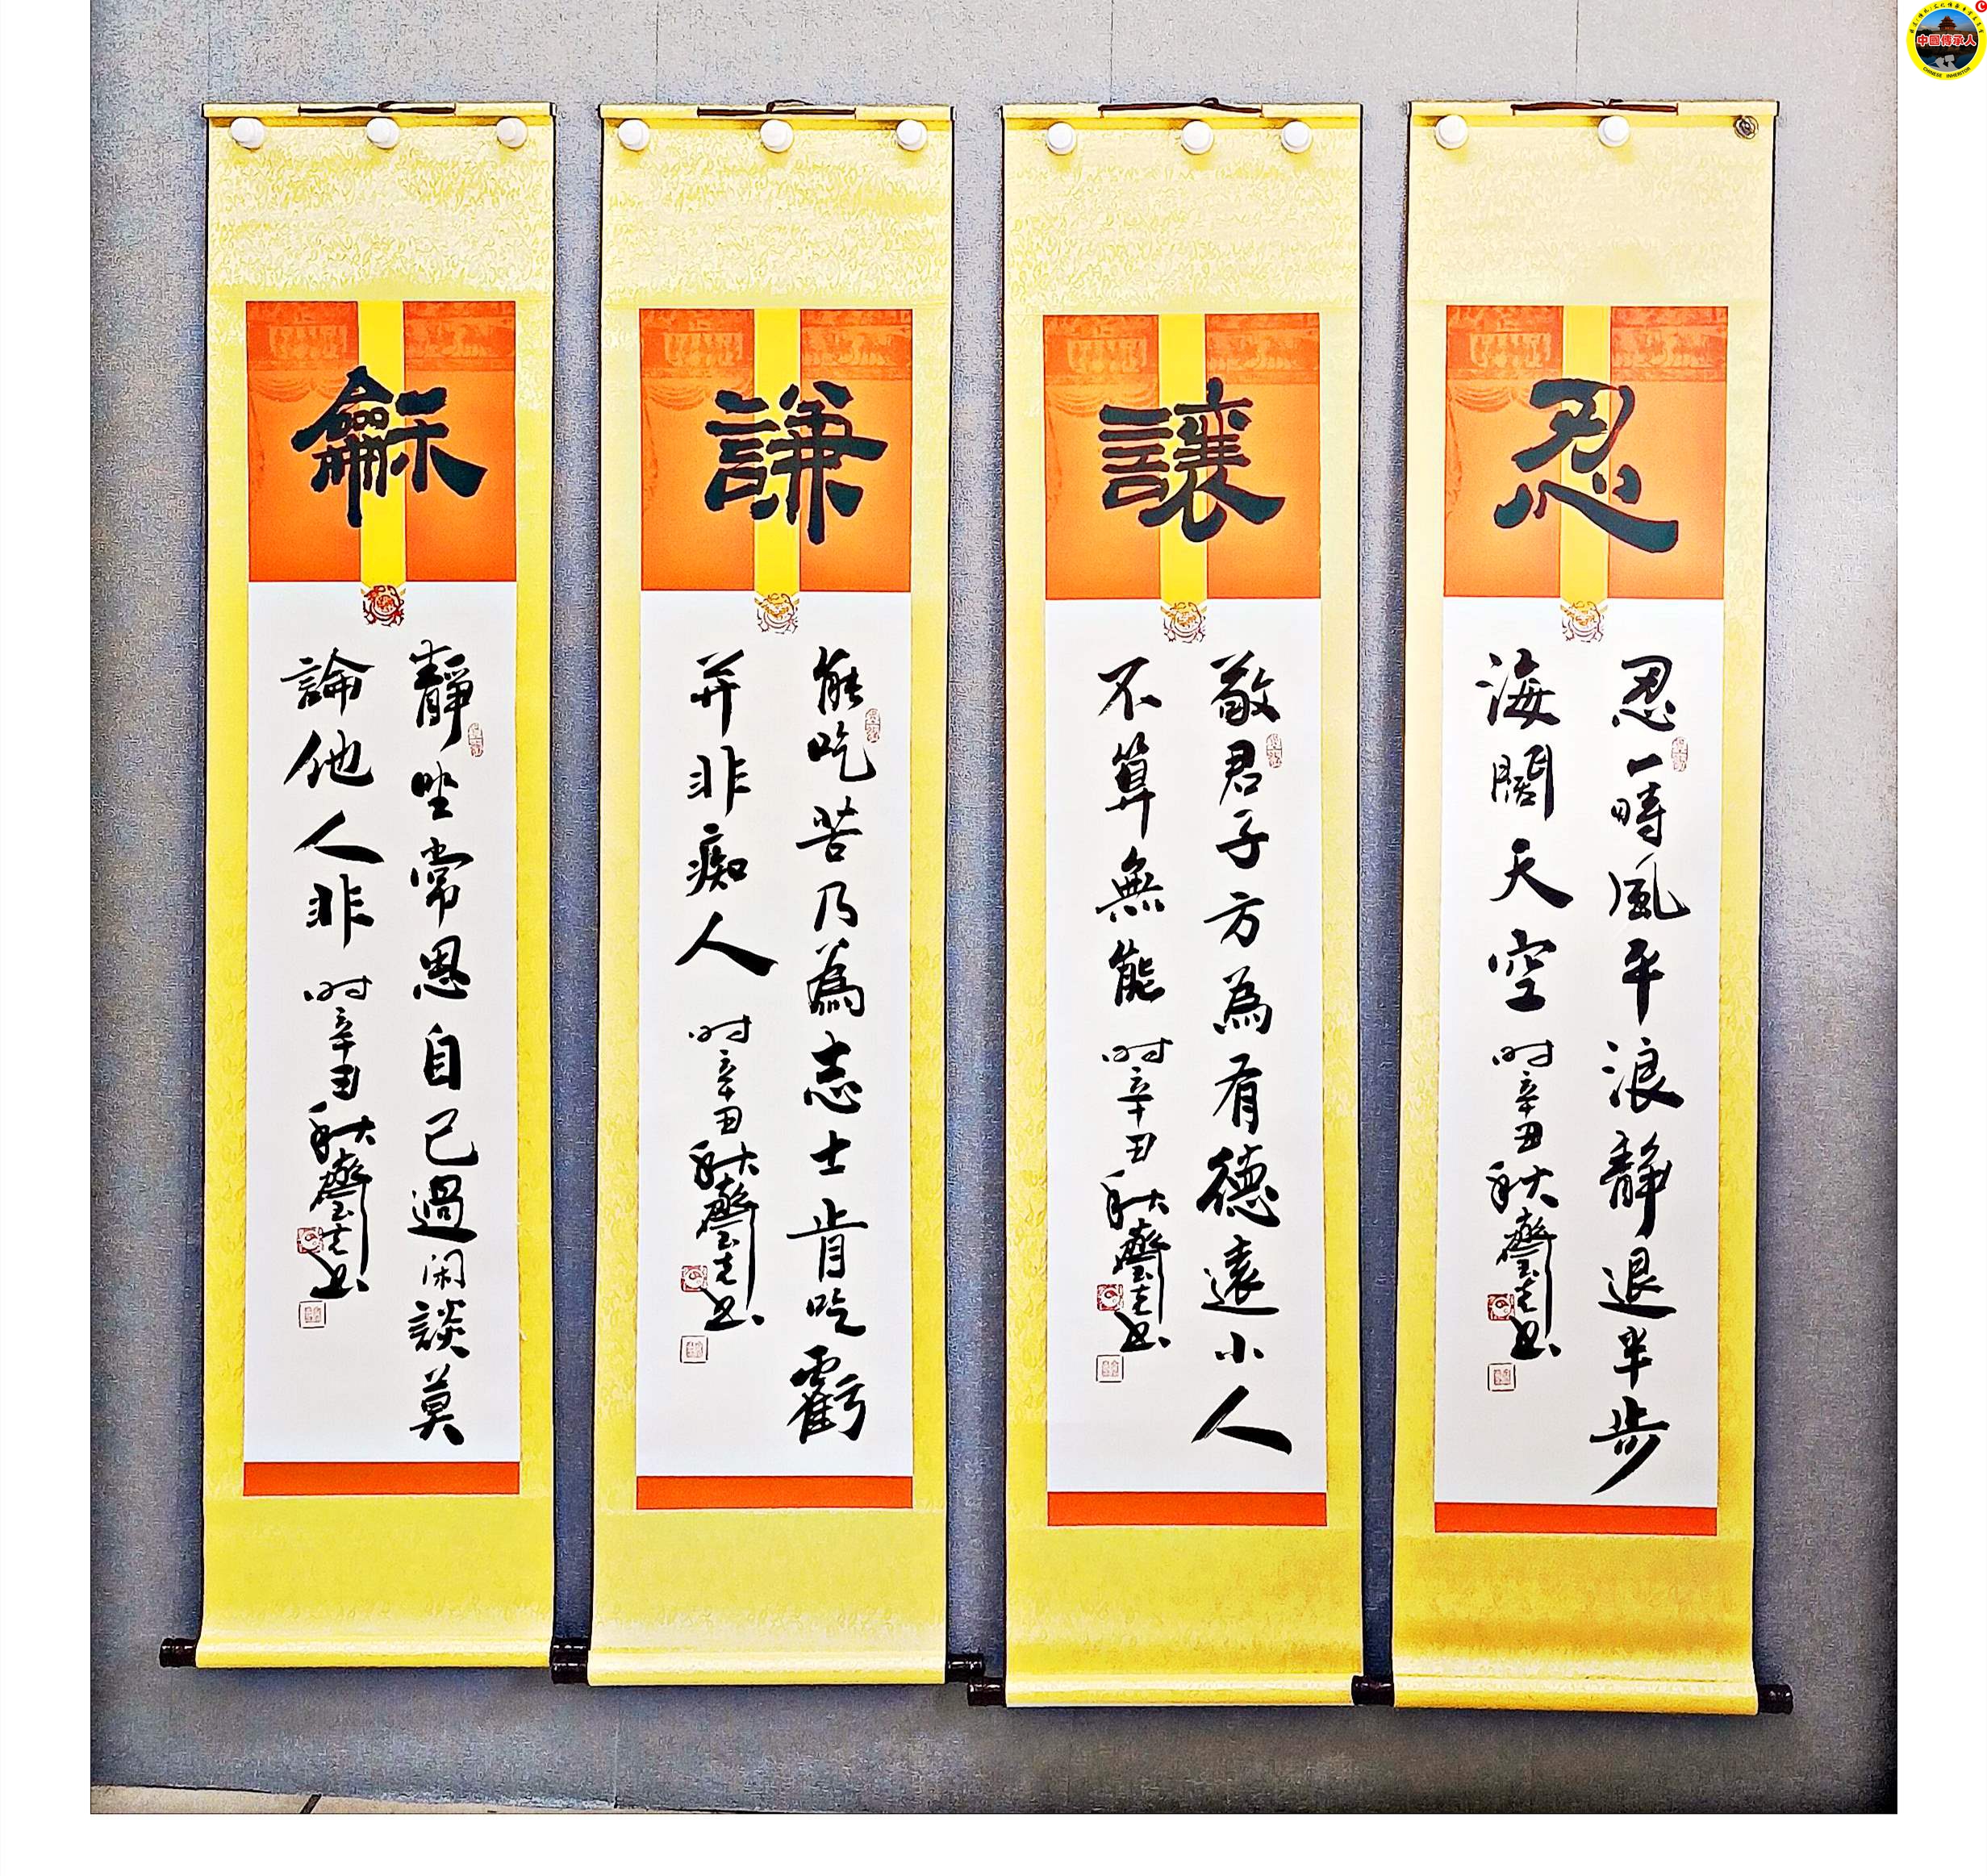 忍
忍一時風平浪靜退半步
海闊天空
时辛丑秋
讓
敬君子方為有德遠小人
不算無能
时辛丑秋
謙
能吃苦乃為志士肯吃虧
并非痴人
时辛丑秋
龢
靜坐常思自己過闲談莫
論他人非
时辛丑秋
中國傳承人
CHINESE INHERITOR